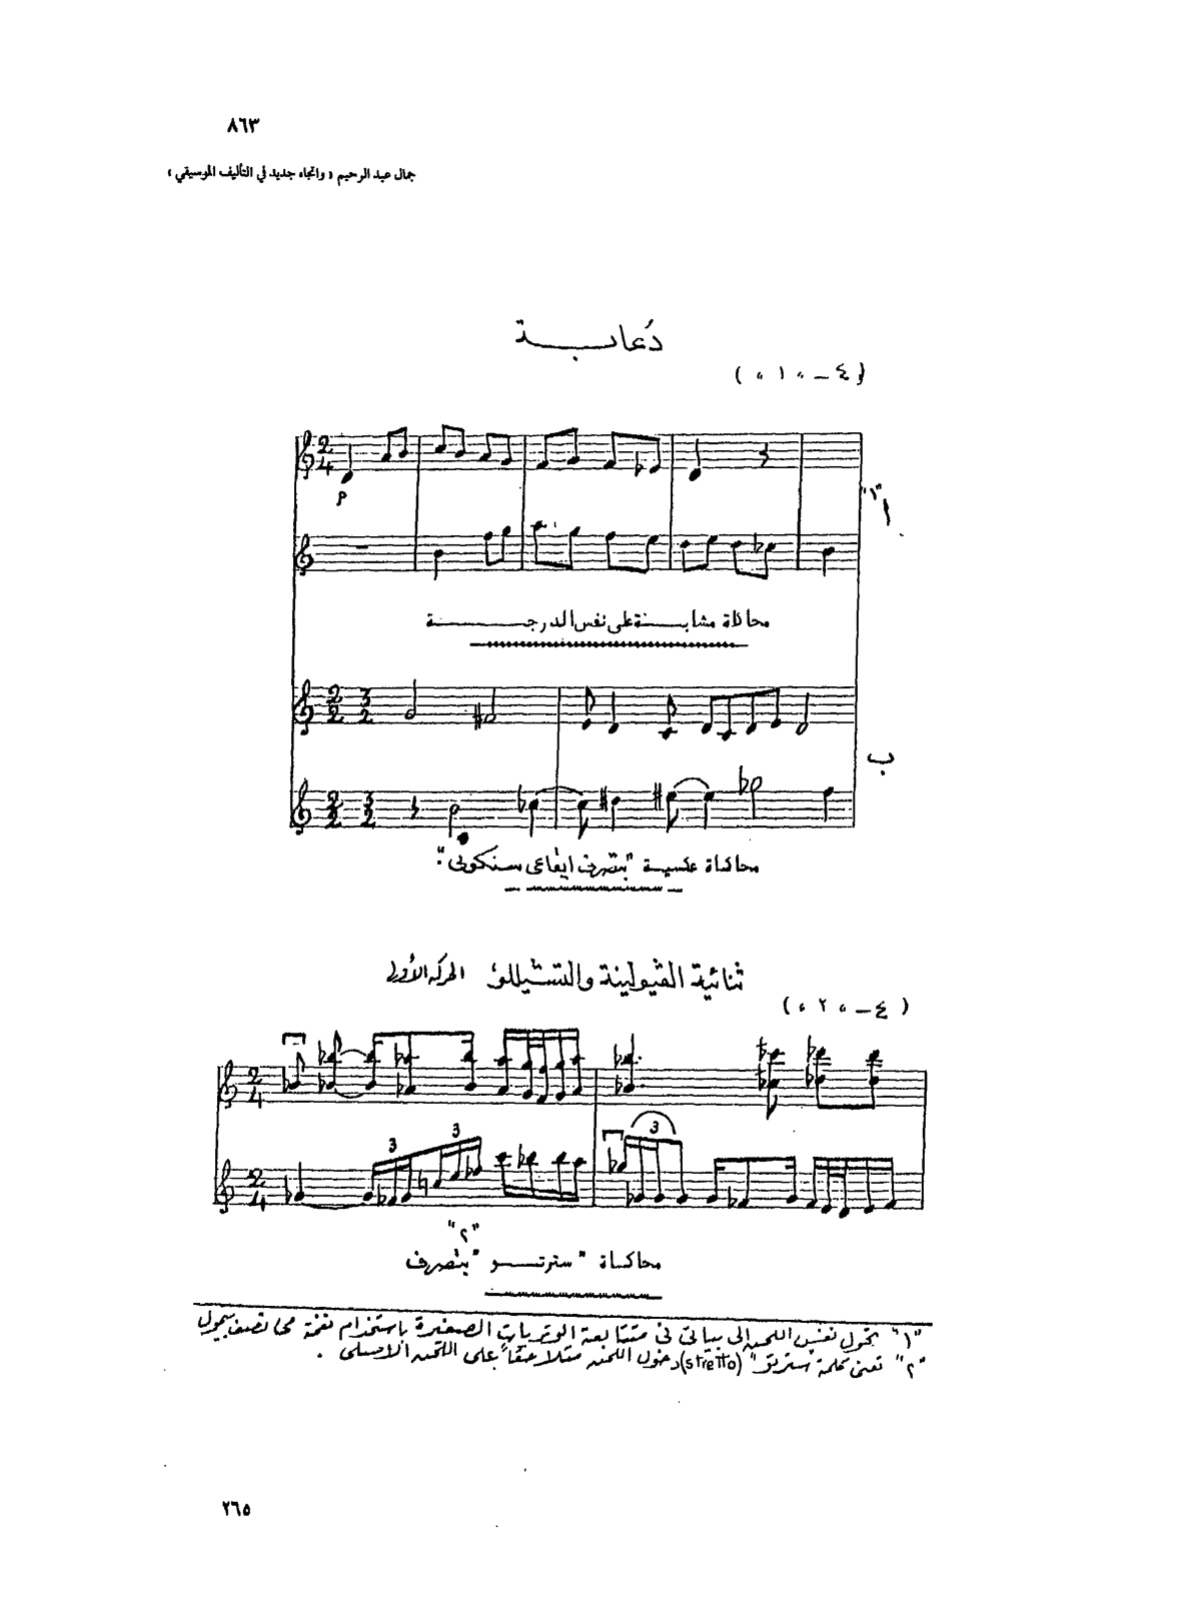 ٨٦٣
جمال عبد الرحيم « واتجاه جديد في التأليف الموسيقي »
دُعابـــة
(٤ – "١")
2 4
p
"١"
أ
محاكاة مشابـــنة على نفس الدرجـــــة
2 2 3 2
ب
2 2 3 2
محاكاة عكسيـة "بتصرف ايقاعى سنكوبى"
ثنائية الڤيولينة والتشيللو الحركة الأولى
(٤ – "٢")
2 4
3 3 3
2 4
"٢"
محاكاة "سترتـــو" بتصرف
"١" تحول نفس اللحن إلى بياتى فى متتابعة الوتريات الصغيرة باستخدام نغمة
"٢" تعنى كلمة ستريتو" (stretto) دخول اللحن متلاحقاً على اللحن الاصلى .
٢٦٥